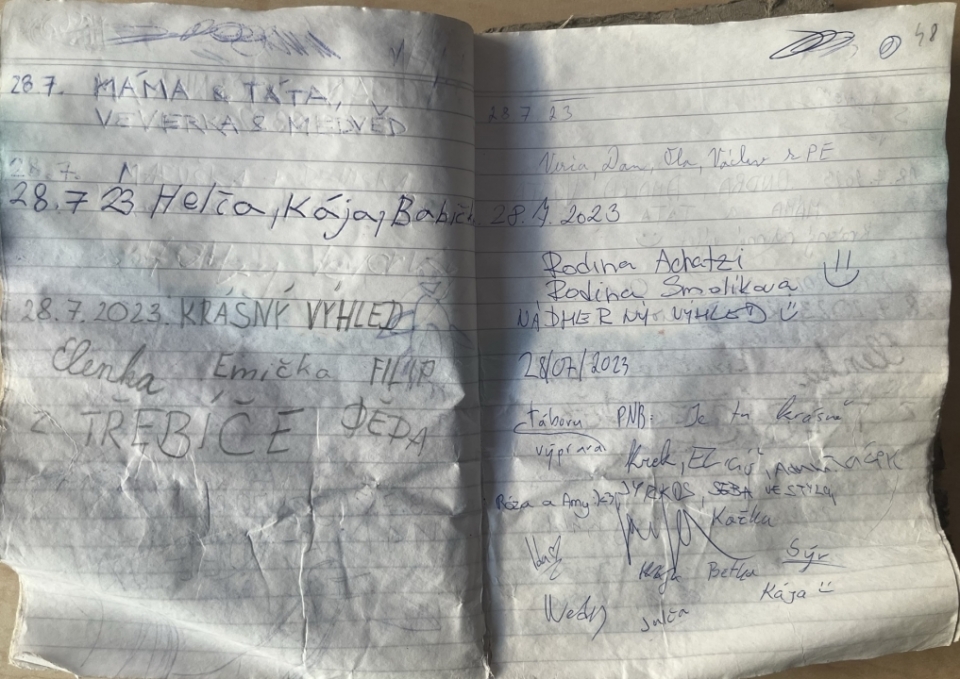 28.7. MÁMA & TÁTA,
VEVERKA & MEDVĚD
28.7 23 Helča, Kája, Babič
28.7.2023. KRÁSNÝ VÝHLED
Elenka Emička FILIP
Z TŘEBÍČE DĚDA
48
28 7 23
Dan, Ela, Václav z PE
28.7.2023
Rodina Achatzi
Rodina Smolíkova
NÁDHERNÝ VÝHLED
28/07/2023
táborů PNB: Je tu krásně
výprava Krek,
Róza a Amy JYRKOS, SEBA VE STYLU
Kačka
Ida
Maja Betka Sýr
Kája
Wendy Julča